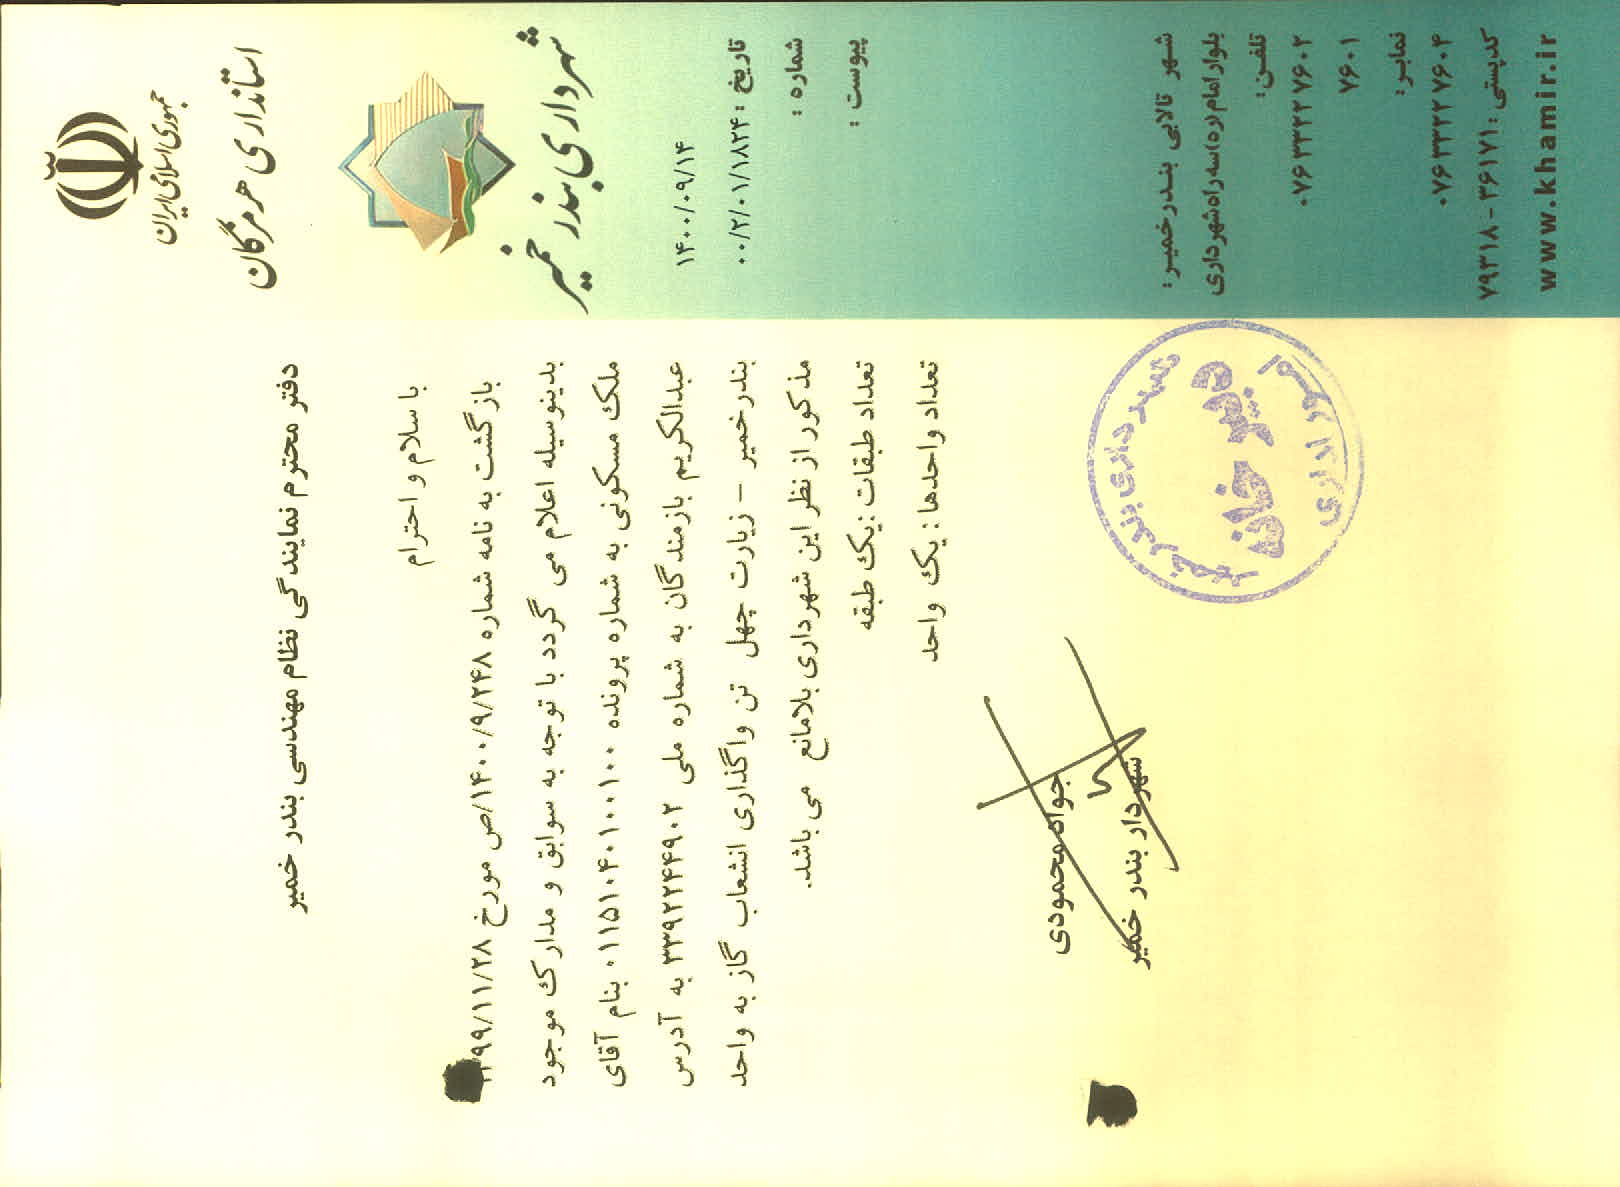 جمهوری اسلامی ایران
استانداری هرمزگان
شهرداری بندر خمیر
تاریخ : ۱۴۰۰/۰۹/۱۴
شماره : ۰۰/۲/۰۱/۱۸۲۴
پیوست :
دفتر محترم نمایندگی نظام مهندسی بندر خمیر
با سلام و احترام
بازگشت به نامه شماره ۱۴۰۰/۹/۲۴۸/ص مورخ ۱۳۹۹/۱۱/۲۸
بدینوسیله اعلام می گردد با توجه به سوابق و مدارک موجود
ملک مسکونی به شماره پرونده ۰۱۱۵۱۰۴۰۱۰۰۱۰۰ بنام آقای
عبدالکریم بازمندگان به شماره ملی ۳۳۹۲۲۴۴۹۰۲ به آدرس
بندرخمیر - زیارت چهل تن واگذاری انشعاب گاز به واحد
مذکور از نظر این شهرداری بلامانع می باشد.
تعداد طبقات : یک طبقه
تعداد واحدها : یک واحد
جواد محمودی
شهردار بندر خمیر
شهرداری بندر خمیر
دبیرخانه
امور اداری
شهر تالابی بندرخمیر:
بلوار امام (ره) سه راه شهرداری
تلفن:
۰۷۶۳۳۳۲۷۶۰۲
۷۶۰۱
نمابر:
۰۷۶۳۳۳۲۷۶۰۴
کدپستی: ۳۶۱۷۱ - ۷۹۳۱۸
www.khamir.ir